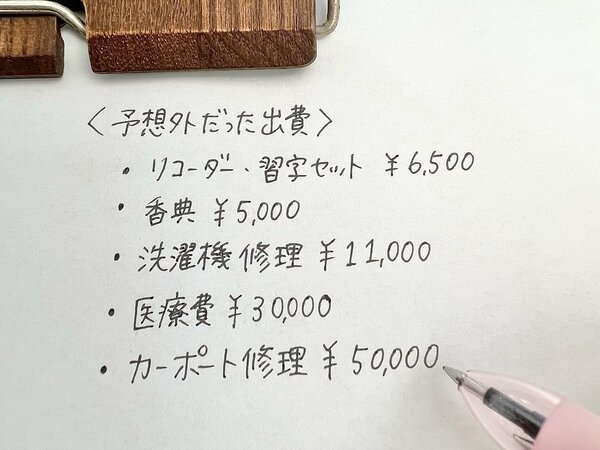 〈予想外だった出費〉
・リコーダー・習字セット ¥6,500
・香典 ¥5,000
・洗濯機修理 ¥11,000
・医療費 ¥30,000
・カーポート修理 ¥50,000